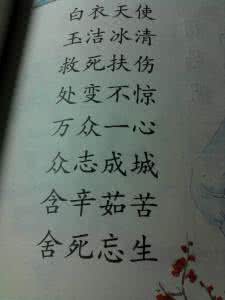 白衣天使
玉洁冰清
救死扶伤
处变不惊
万众一心
众志成城
含辛茹苦
舍死忘生